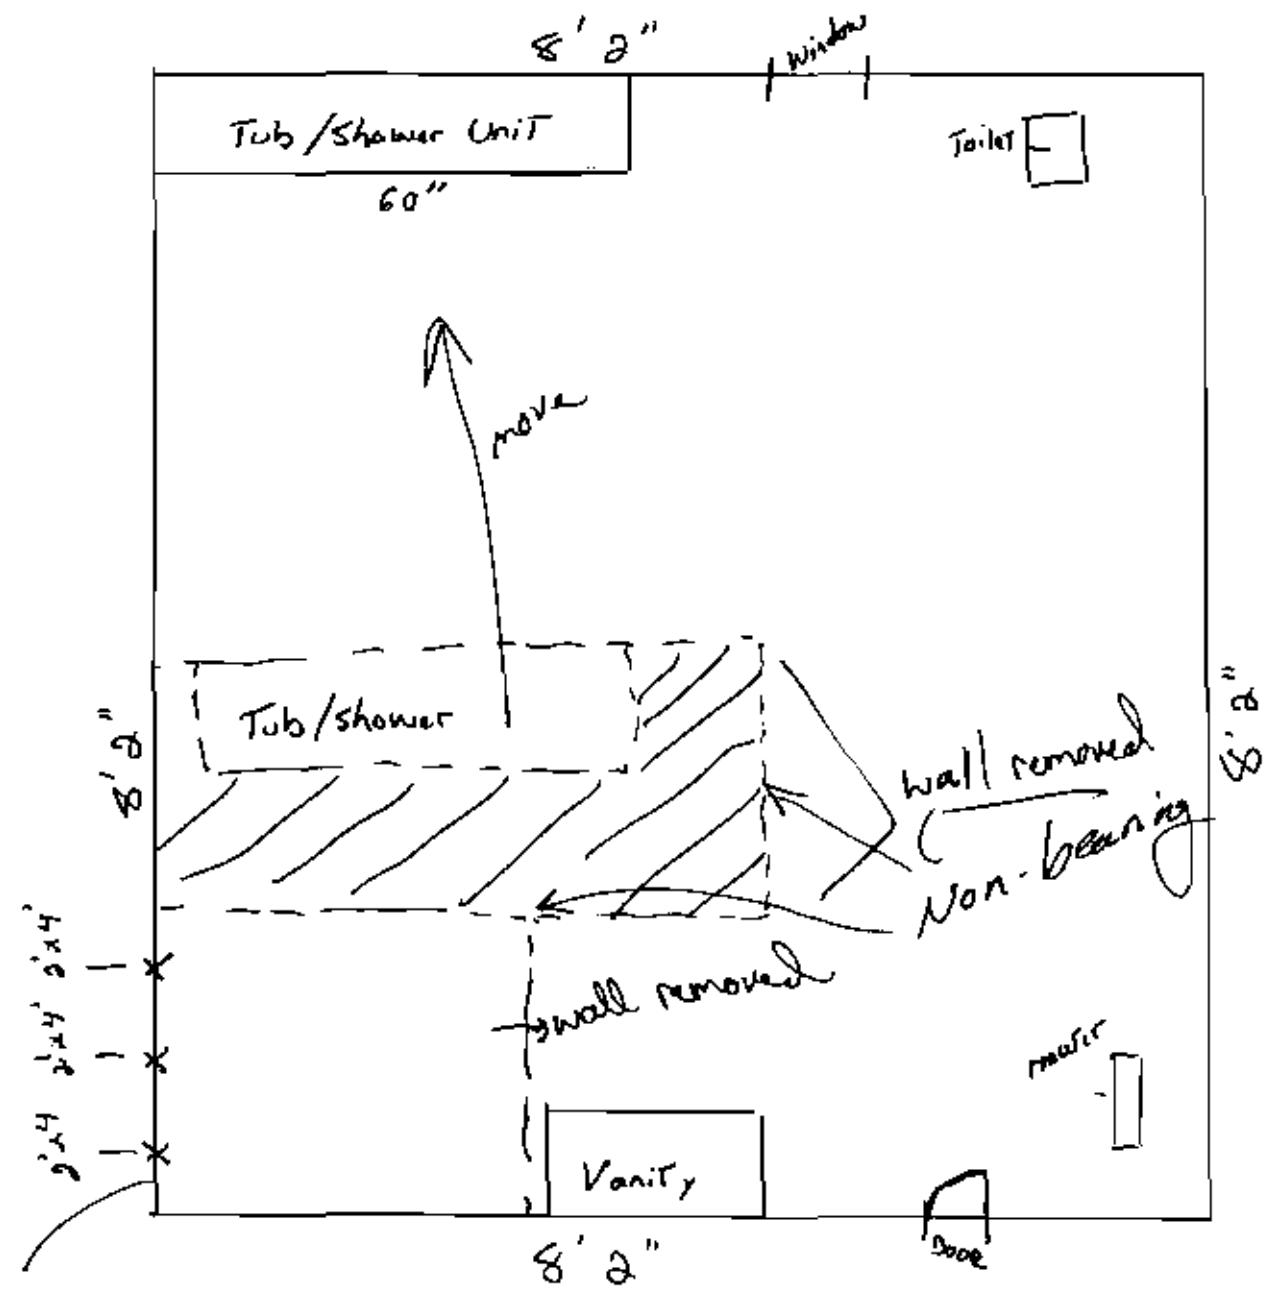 8' 2"
Window
Tub/Shower Unit
Toilet
60"
move
Tub/Shower
8' 2"
8' 2"
wall removed
Non-bearing
wall removed
2'x4'
2'x4'
2'x4
Vanity
Door
8' 2"